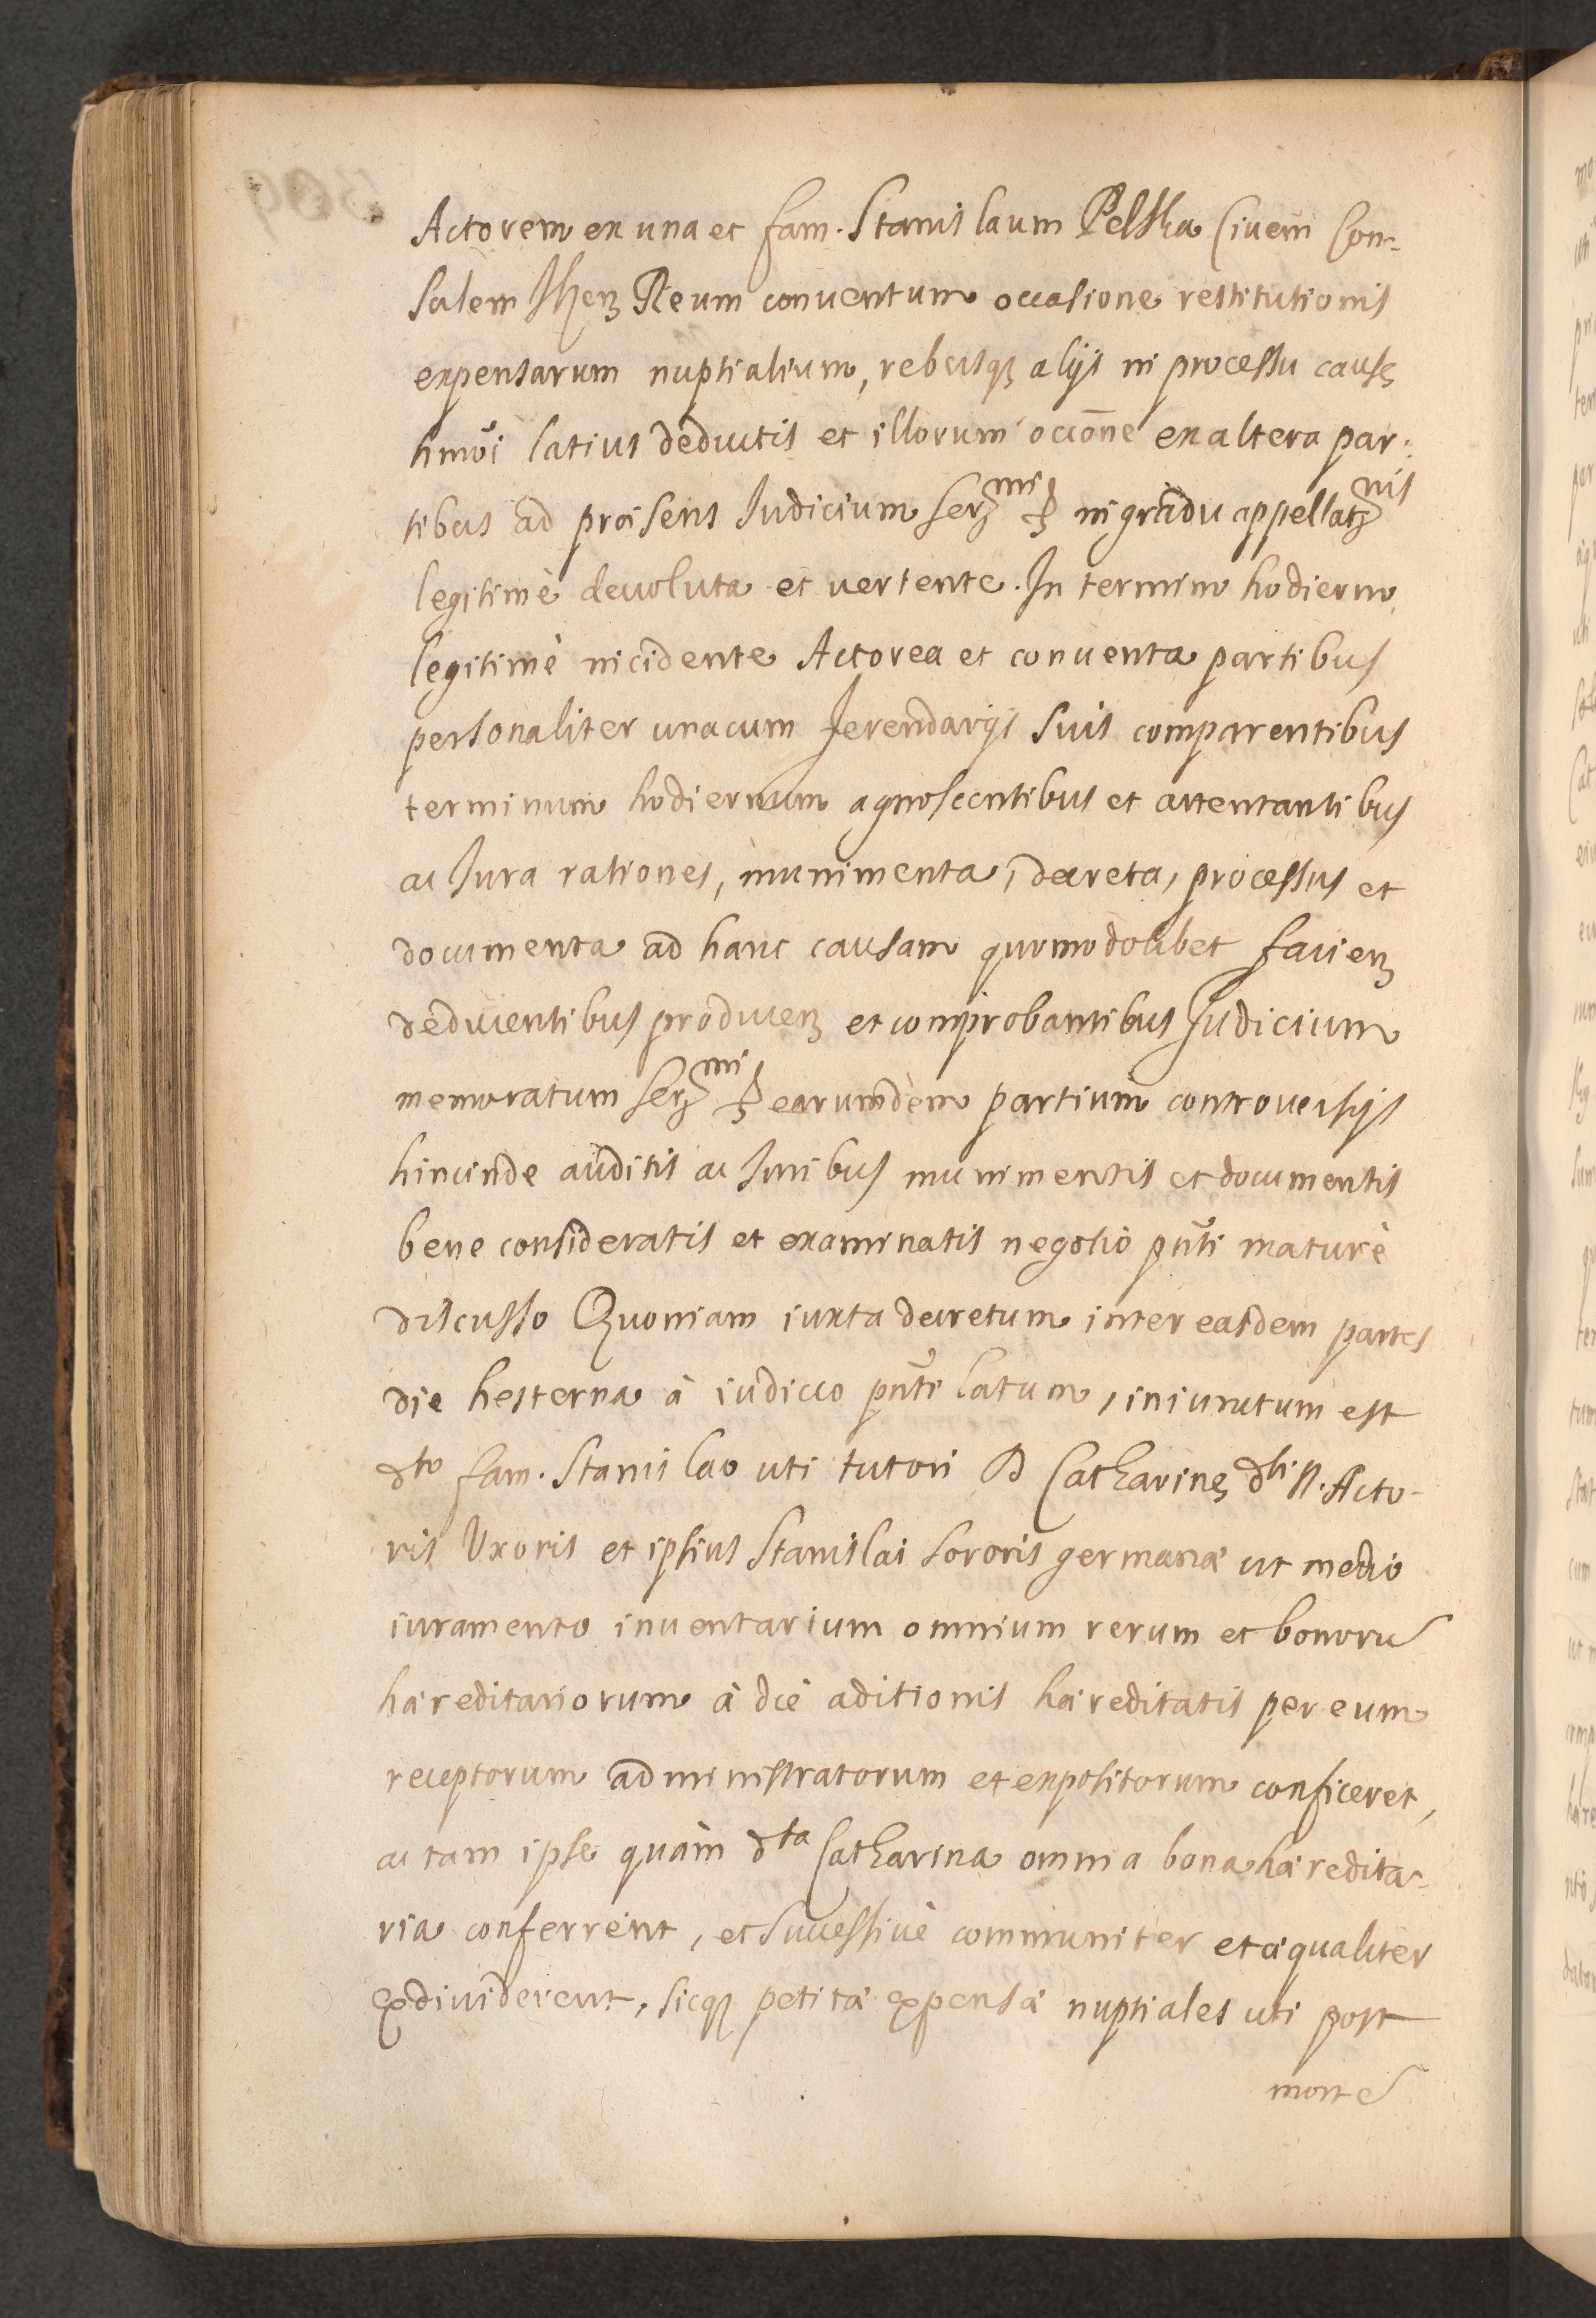 Actorem ex una et fam. Stanislaum Pelska Civem Con-
sulem Ilkeȝ Reum conventum occasione restitutionis
expensarum nuptialium, rebusqȝ alijs in processu causę
hmōi latius deductis et illorum occōne ex altera par-
tibus ad præsens Iudicium Serȝmi in gradu appellatȝnis
legitimè devoluta et vertente. In termino hodierno
legitimè incidente Actorea et conventa partibus
personaliter unacum Ferendarijs suis comparentibus
terminum hodiernum agnoscentibus et attentantibus
ac Iura rationes, munimenta, decreta, processus et
documenta ad hanc causam quomodolibet facienȝ
deducentibus producenȝ et comprobantibus Iudicium
memoratum Serȝmi earumdem partium controversijs
hincinde auditis ac Iuribus munimentis et documentis
bene consideratis et examinatis negotio pn̄ti maturè
discusso Quoniam iuxta decretum inter easdem partes
die hesterna à iudicio pn̄ti latum, iniunctum est
dto fam. Stanislao uti tutori Catharinę dti N. Acto-
ris Uxoris et ipsius Stanislai sororis germanæ ut medio
iuramento inventarium omnium rerum et bonorū
hæreditariorum à die aditionis hæreditatis per eum
receptorum administratorum et expositorum conficeret,
ac tam ipse quàm dta Catharina omnia bona hæredita-
ria conferrent, et successivè communiter et æqualiter
exdividerent, sicqȝ petitæ expensæ nuptiales uti post
mortē